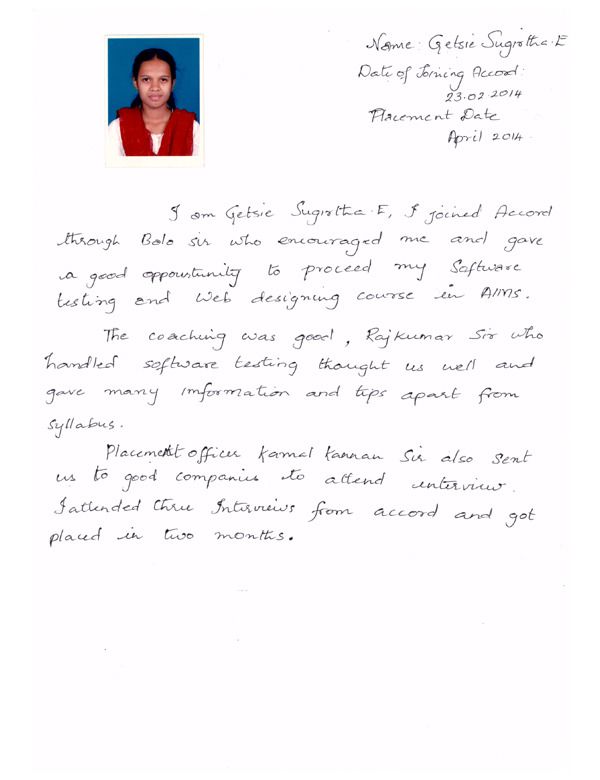 Name: Getsie Sugirtha.E
Date of Joining Accord:
23.02.2014
Placement Date
April 2014.
I am Getsie Sugirtha.E, I joined Accord
through Bala sir who encouraged me and gave
a good oppourtunity to proceed my Software
testing and Web designing course in AIMS.
The coaching was good, Rajkumar Sir who
handled software testing thought us well and
gave many information and tips apart from
syllabus.
Placement officer Kamal Kannan Sir also sent
us to good companies to attend interview.
I attended three Interviews from accord and got
placed in two months.